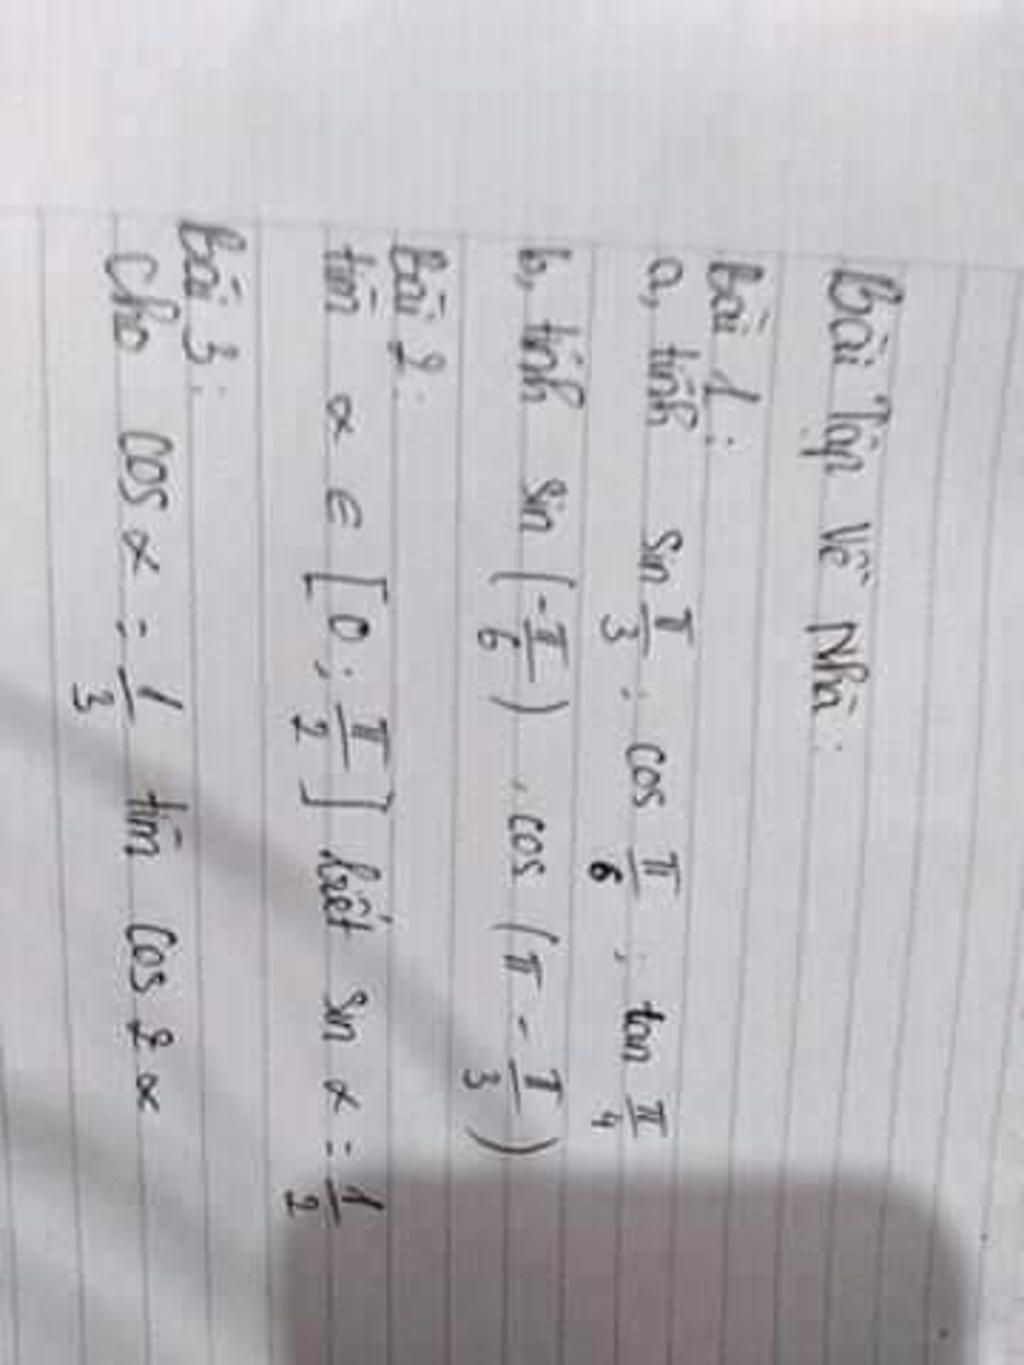 Bài Tập Về Nhà:
Bài 1:
a, tính sin π/3 ; cos π/6 ; tan π/4
b, tính sin (-π/6) , cos (π - π/3)
Bài 2:
tìm α ∈ [0 ; π/2] biết sin α = 1/2
Bài 3:
Cho cos α = 1/3 tìm cos 2α